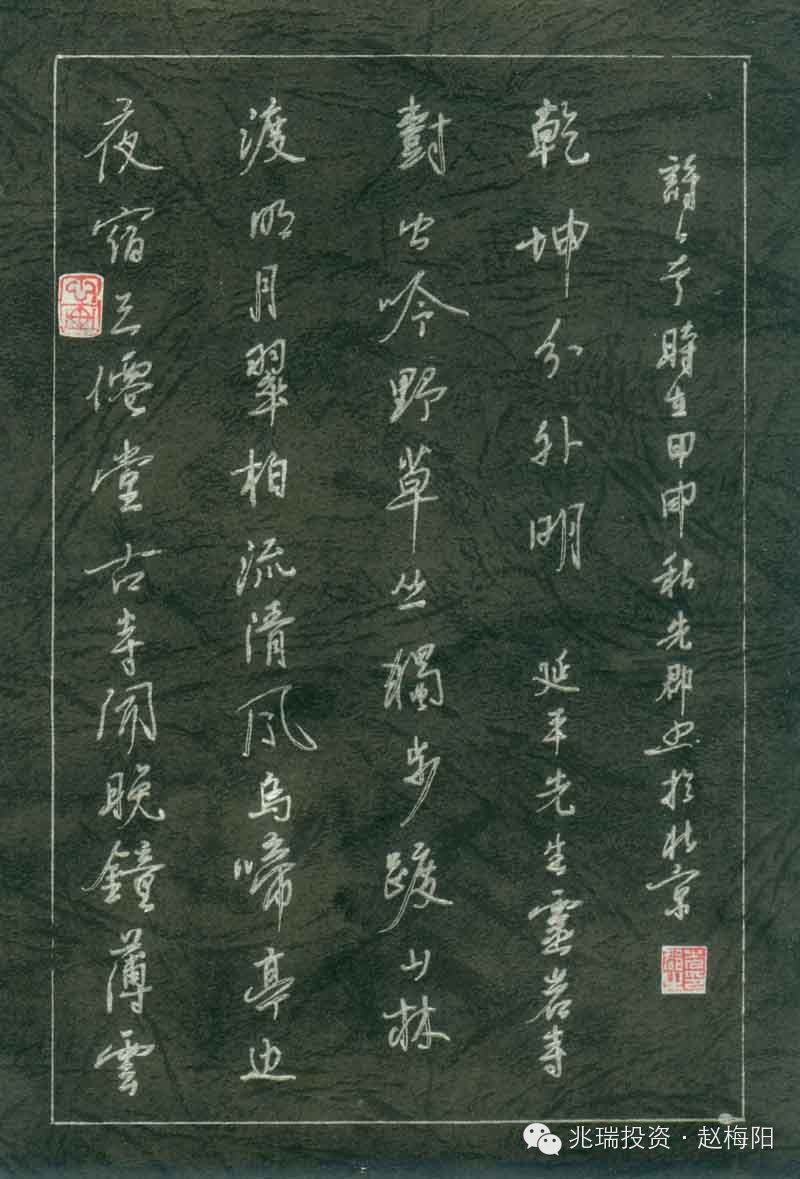 夜宿僊堂古寺闻晚鐘薄雲
渡明月翠柏流清風烏啼亭边
對吟野草丛獨步踱山林
乾坤分外明 延平先生靈岩寺
詩一首時在甲申秋先郡书於北京
兆瑞投资·赵梅阳